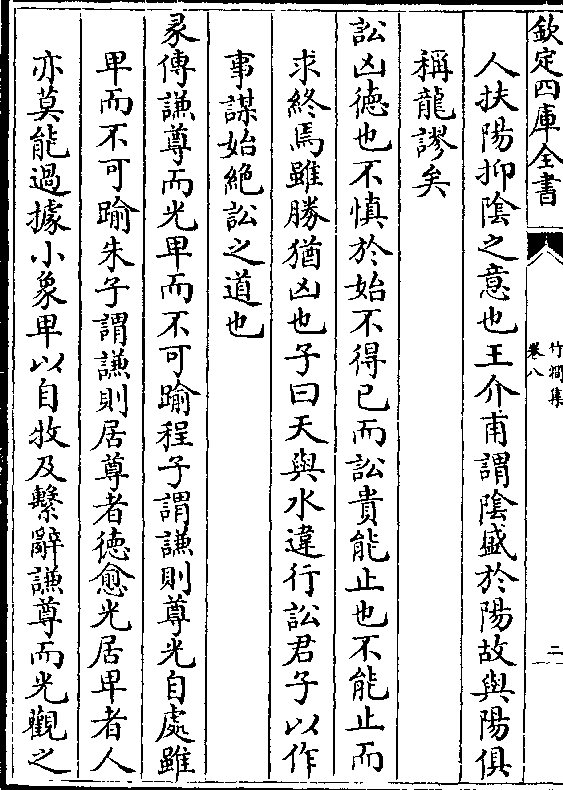 欽定四庫全書
竹澗集
卷八
二
人扶陽抑陰之意也王介甫謂陰盛於陽故與陽俱
稱龍謬矣
訟凶德也不慎於始不得已而訟貴能止也不能止而
求終焉雖勝猶凶也子曰天與水違行訟君子以作
事謀始絶訟之道也
彖傳謙尊而光卑而不可踰程子謂謙則尊光自處雖
卑而不可踰朱子謂謙則居尊者德愈光居卑者人
亦莫能過據小象卑以自牧及繫辭謙尊而光觀之